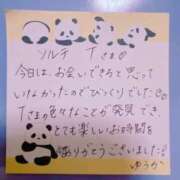 ソルテ Tさま
今日は、お会いできると思って
いなかったのでびっくりでした
Tさまが色々なことが発見でき、
とても楽しいお時間を
ありがとうございました!
ゆうか